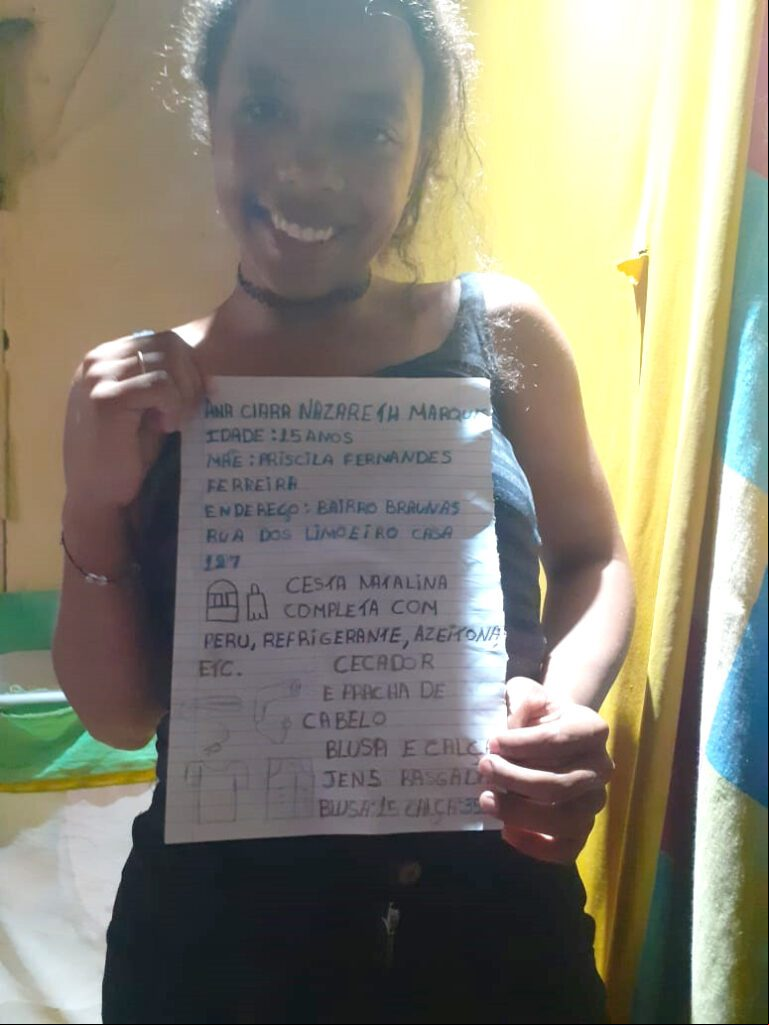 ANA CLARA NAZARETH MARQUE
IDADE : 15 ANOS
MÃE : PRISCILA FERNANDES
FERREIRA
ENDEREÇO : BAIRRO BRAUNAS
RUA DOS LIMOEIRO CASA
127
CESTA NATALINA
COMPLETA COM
PERU, REFRIGERANTE, AZEITONA,
ETC. CECADOR
E PRACHA DE
CABELO
BLUSA E CALÇA
JENS RASGADA
BLUSA:15 CALÇA:35